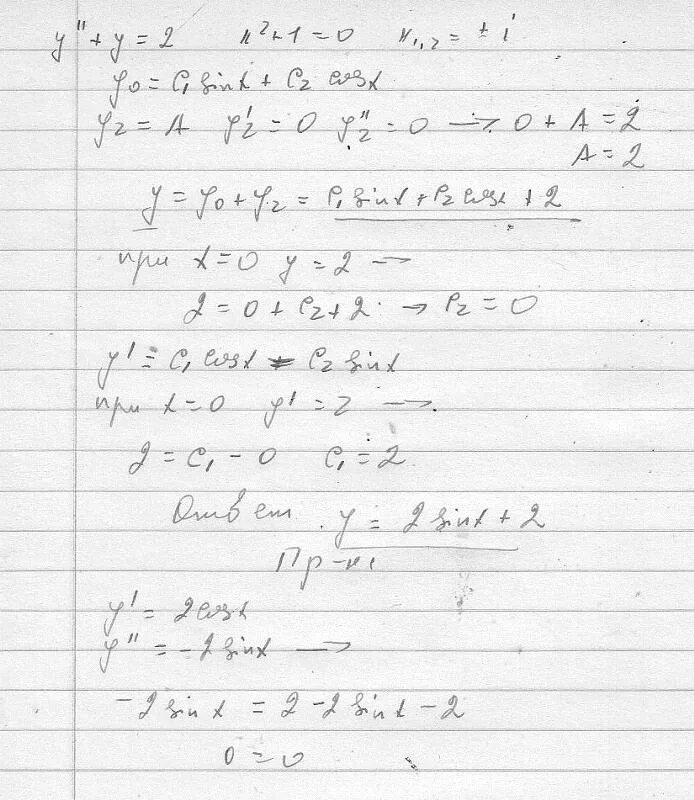 y'' + y = 2 k² + 1 = 0 k₁,₂ = ± i
y₀ = C₁ sinx + C₂ cosx
y₂ = A y₂' = 0 y₂'' = 0 → 0 + A = 2
A = 2
y = y₀ + y₂ = C₁ sinx + C₂ cosx + 2
при x = 0 y = 2 →
2 = 0 + C₂ + 2 → C₂ = 0
y' = C₁ cosx - C₂ sinx
при x = 0 y' = 2 →
2 = C₁ - 0 C₁ = 2
Ответ y = 2 sinx + 2
Пр-ка
y' = 2 cosx
y'' = - 2 sinx →
- 2 sin x = 2 - 2 sinx - 2
0 = 0